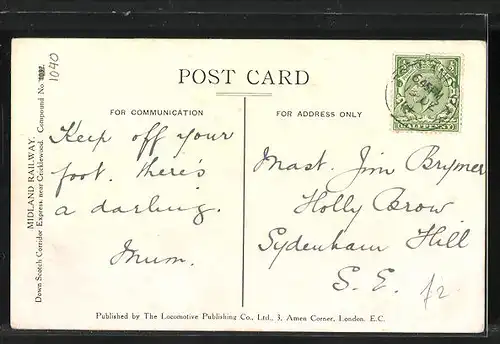 POST CARD
FOR COMMUNICATION
FOR ADDRESS ONLY
MIDLAND RAILWAY.
Down Scotch Corridor Express, near Cricklewood. Compound No.
1040
Keep off your
foot. there's
a darling.
Mum.
Mast. Jim Brymer
Holly Brow
Sydenham Hill
S. E.
£2
HALFPENNY
Published by The Locomotive Publishing Co., Ltd., 3, Amen Corner, London, E.C.